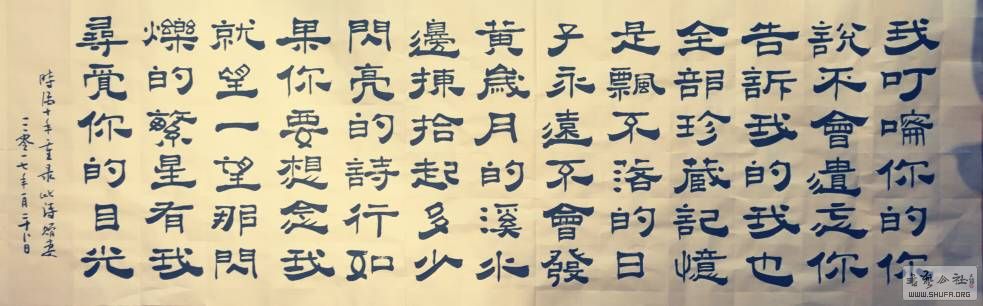 我叮嚀你的你
說不會遺忘你
告訴我的我也
全部珍藏記憶
是飄不落的日
子永遠不會發
黄歲月的溪水
邊揀拾起多少
閃亮的詩行如
果你要想念我
就望一望那閃
爍的繁星有我
尋覓你的目光
時隔十年重录此詩贈妻
二零一七年一月二十日
WWW.SHUFA.ORG